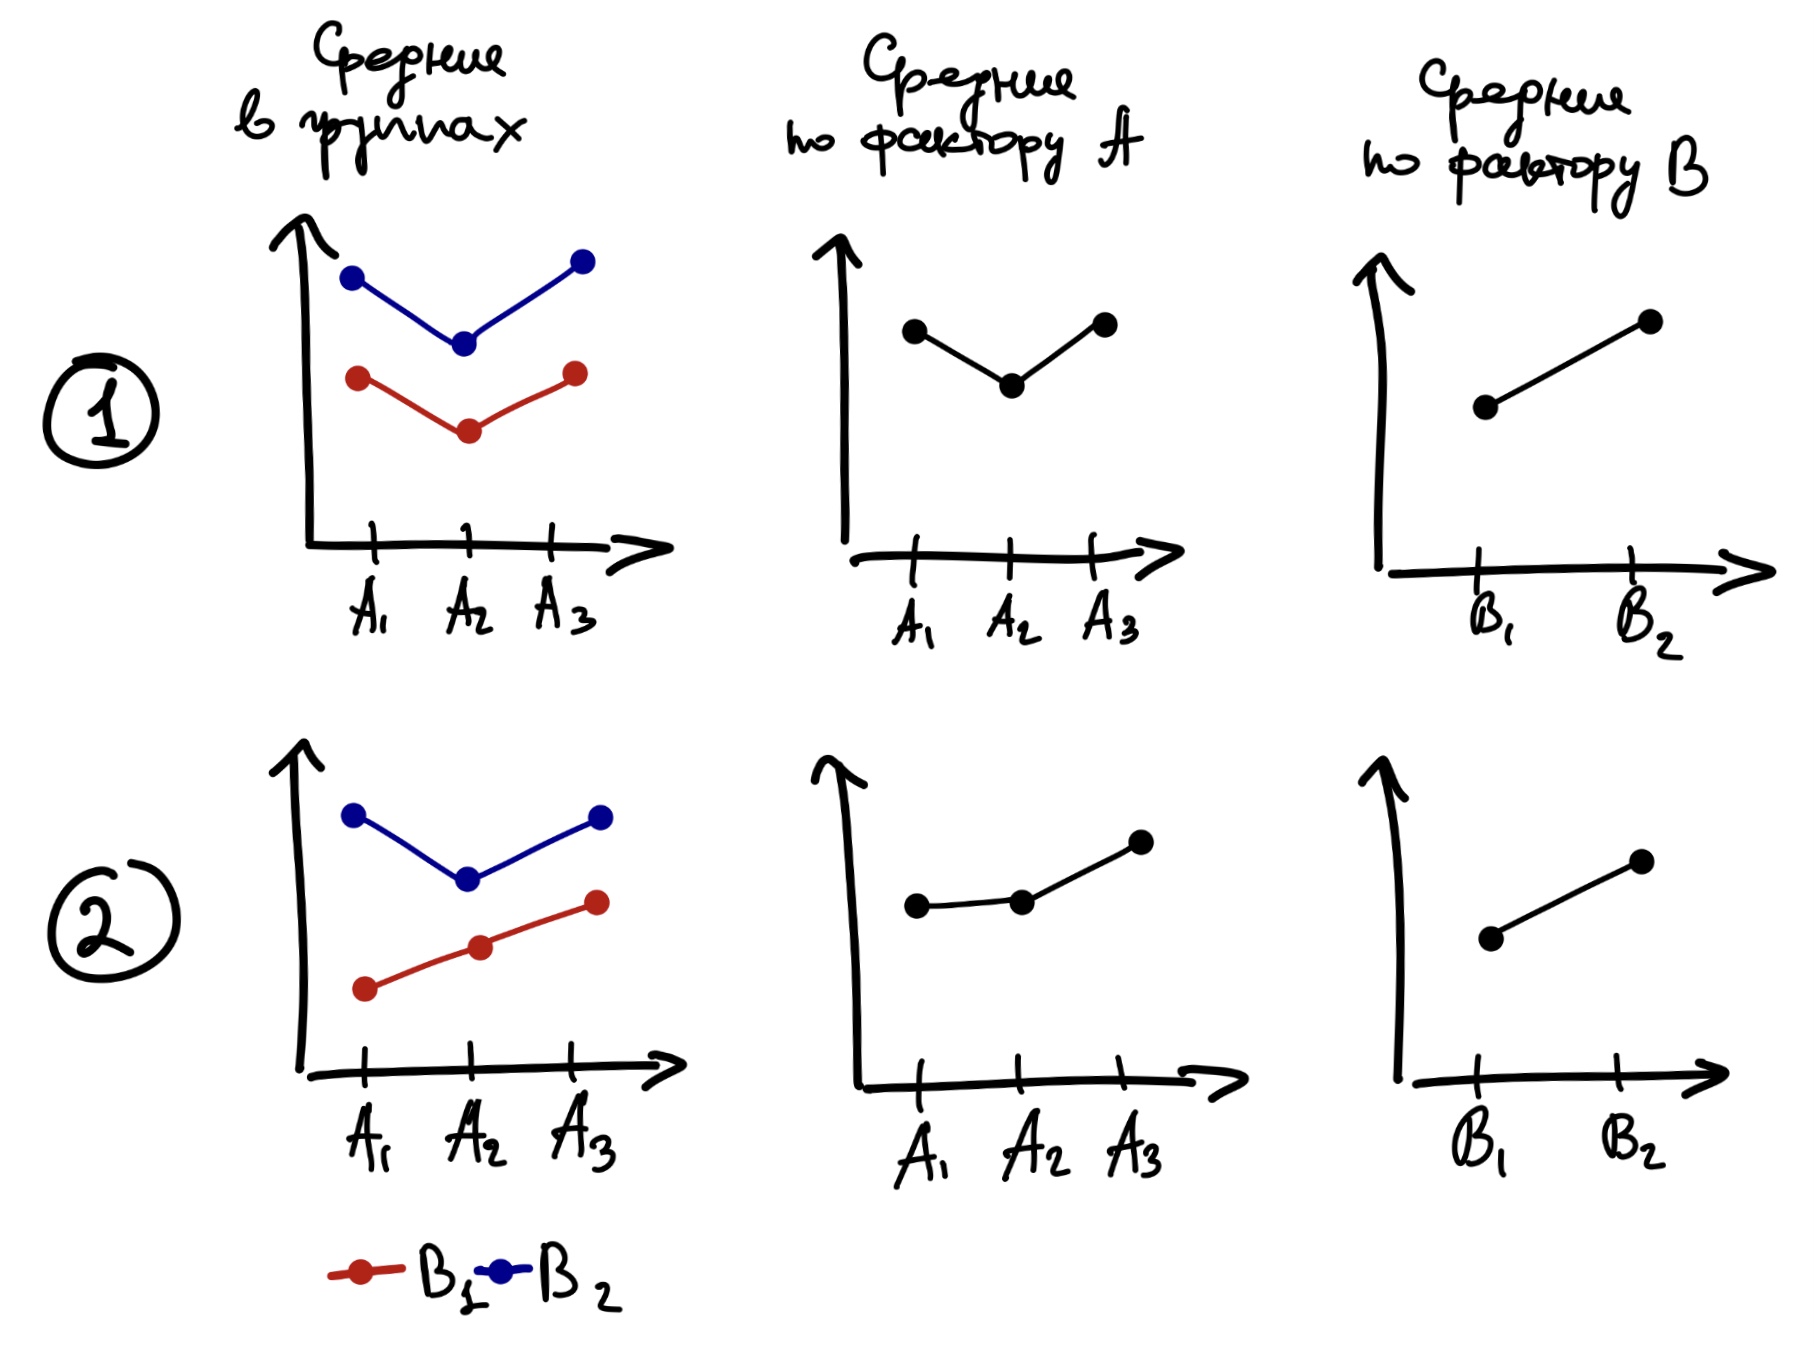 Средние
в группах
Средние
по фактору A
Средние
по фактору B
1
A₁ A₂ A₃
A₁ A₂ A₃
B₁ B₂
2
A₁ A₂ A₃
A₁ A₂ A₃
B₁ B₂
B₁ B₂